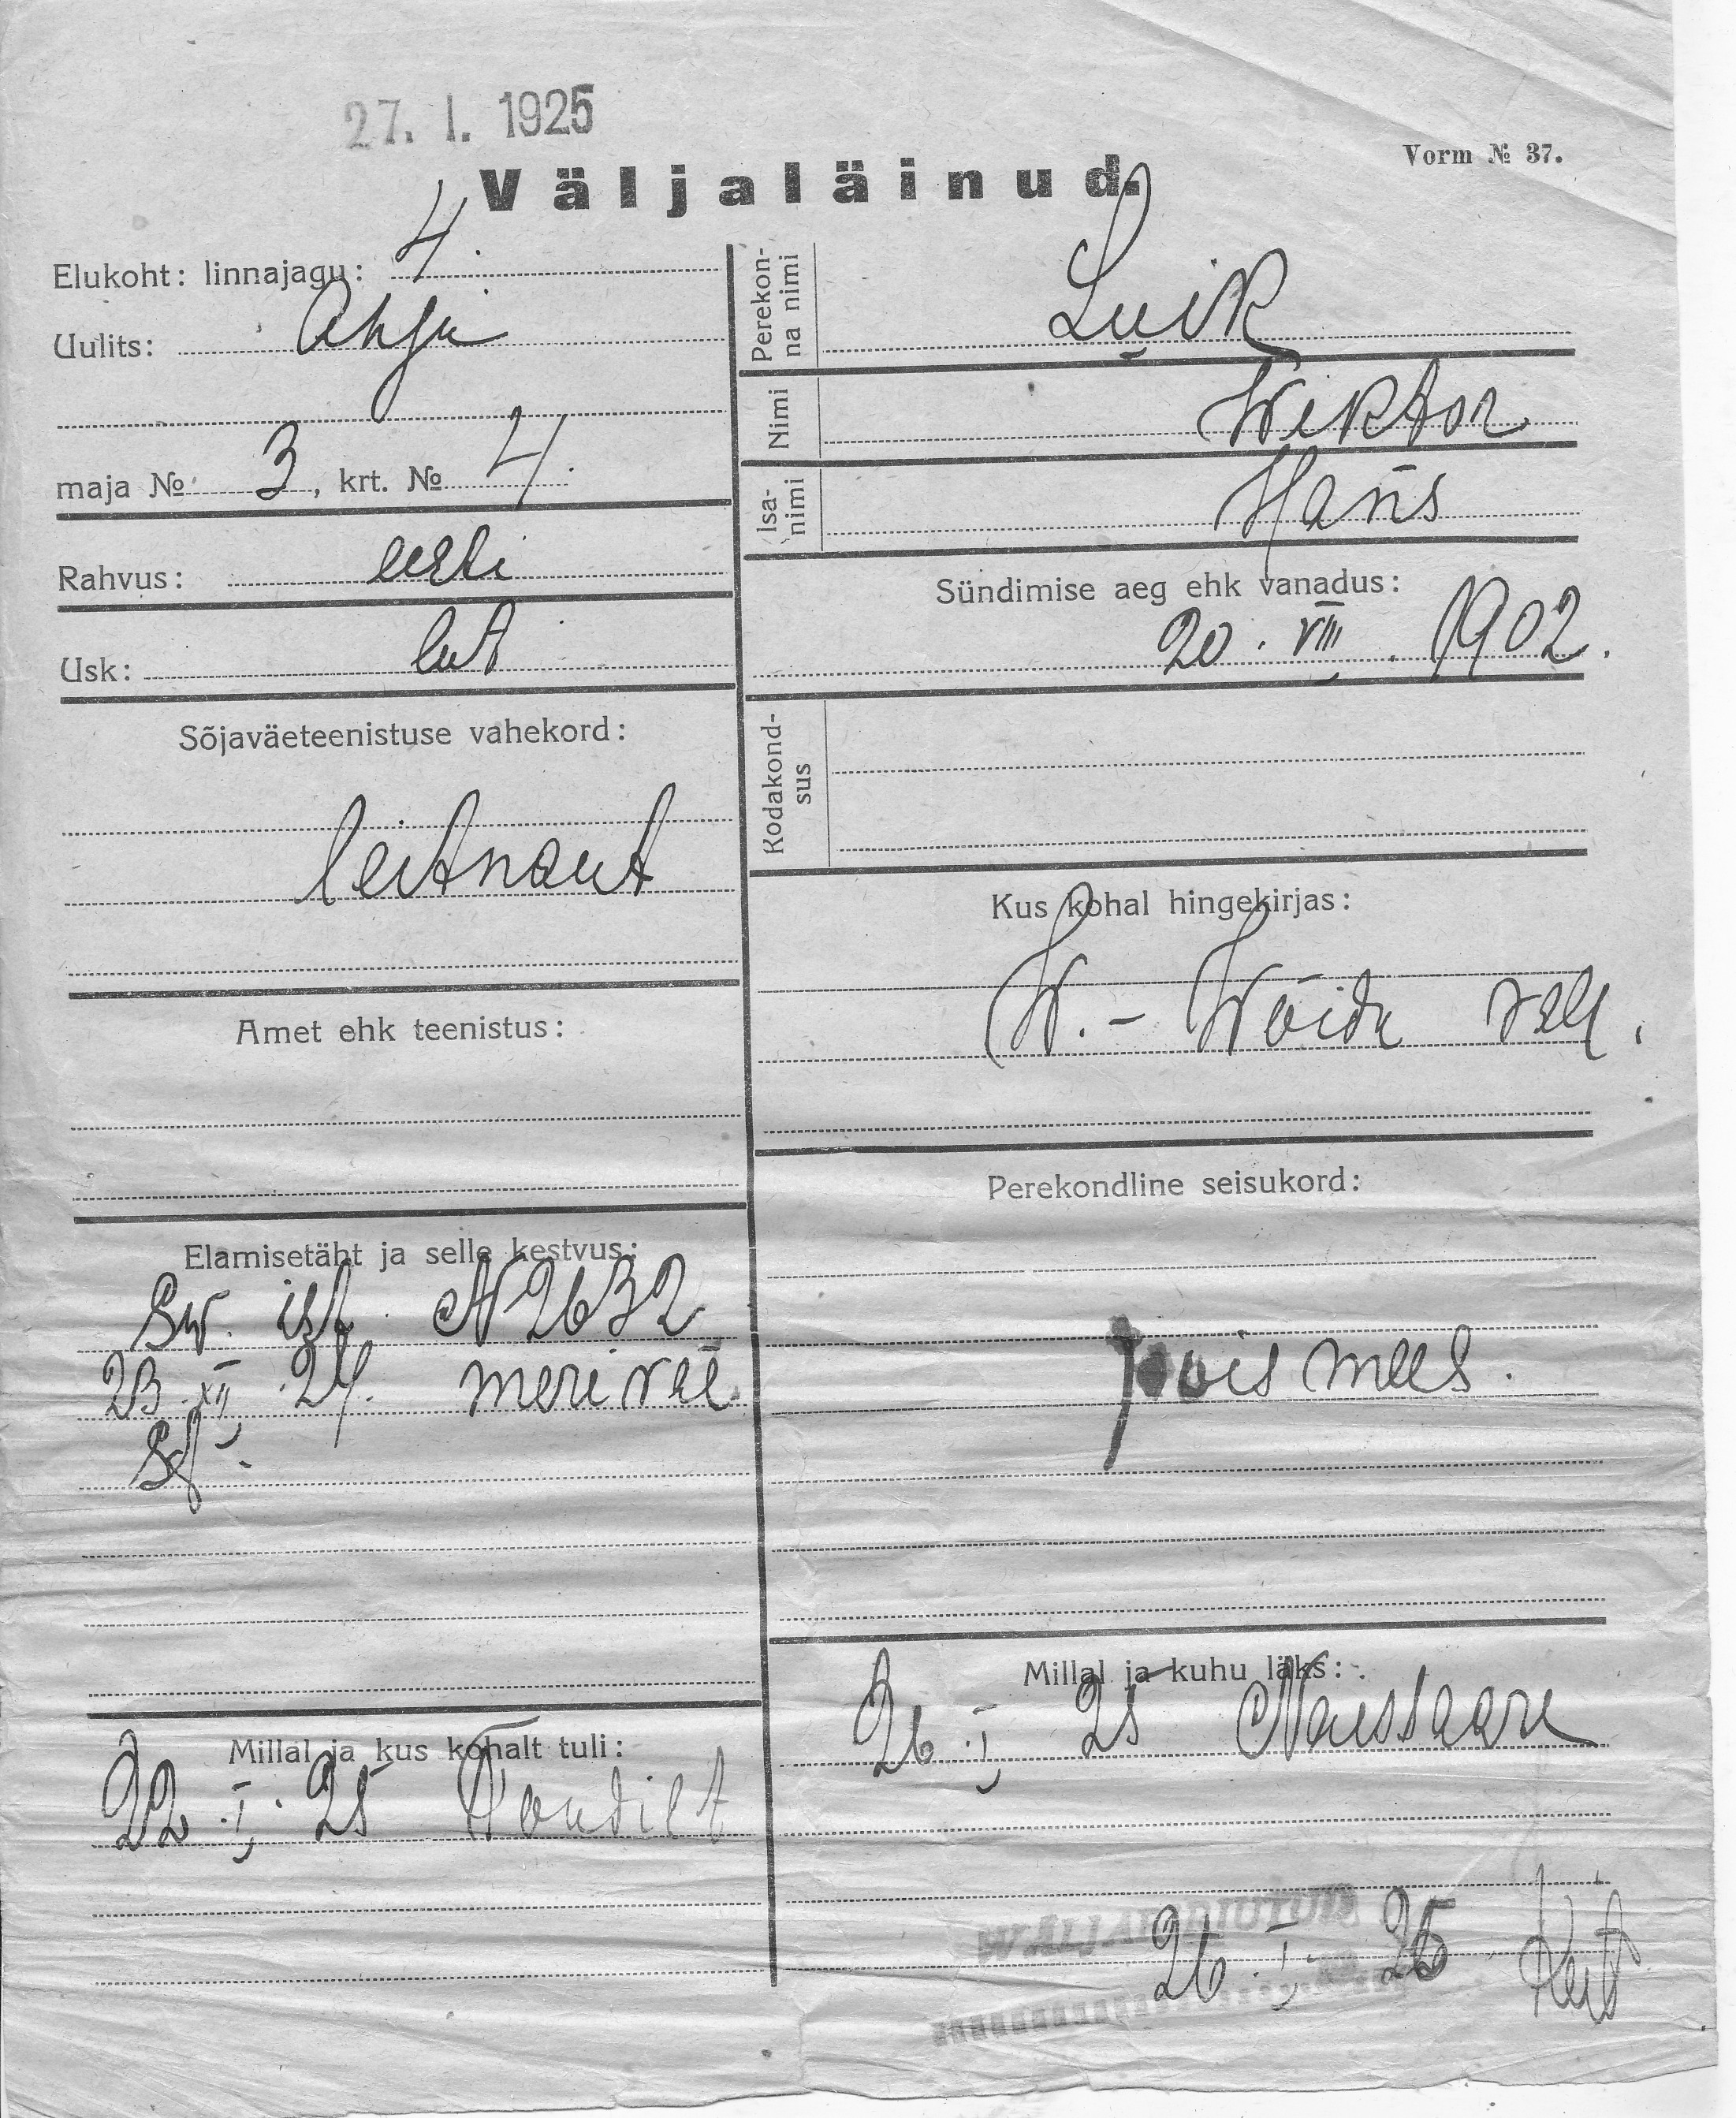 27. I. 1925
Vorm № 37.
Väljaläinud.
Elukoht: linnajagu: 4.
Uulits: Ahju
maja № 3, krt. № 4.
Rahvus: eesti
Usk: lut
Sõjaväeteenistuse vahekord:
leitnant
Amet ehk teenistus:
Elamisetäht ja selle kestvus:
Sw. ist. N 2632
23. XII. 24. meriväe
Millal ja kus kohalt tuli:
22. I. 25 Tondilt
Perekonna nimi
Luik
Nimi
Wiktor
Isanimi
Hans
Sündimise aeg ehk vanadus:
20. VIII. 1902.
Kodakondsus
Kus kohal hingekirjas:
W.-Wõidu vall.
Perekondline seisukord:
poismees.
Millal ja kuhu läks:
26. I. 25 Naissaare
WÄLJAKIRJUTUD
26. I. 25